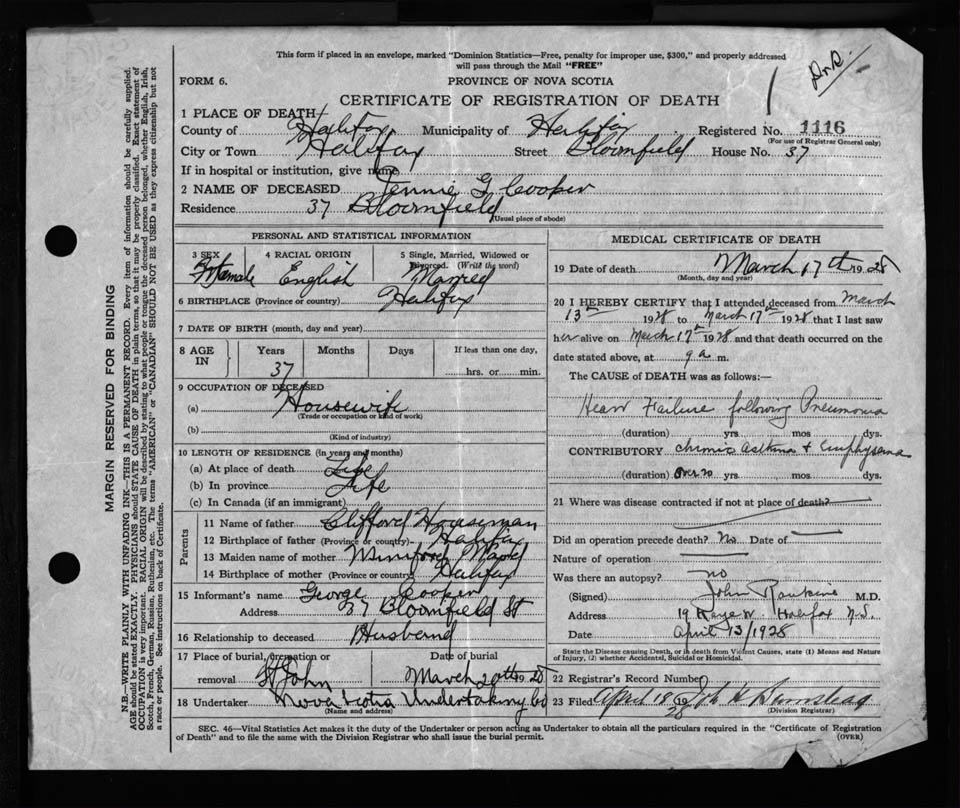 This form if placed in an envelope, marked "Dominion Statistics—Free, penalty for improper use, $300," and properly addressed
will pass through the Mail "FREE"
FORM 6. PROVINCE OF NOVA SCOTIA
CERTIFICATE OF REGISTRATION OF DEATH
1 PLACE OF DEATH
County of Halifax Municipality of Halifax Registered No. 1116
(For use of Registrar General only)
City or Town Halifax Street Bloomfield House No. 37
If in hospital or institution, give name
2 NAME OF DECEASED Jennie G. Cooper
Residence 37 Bloomfield
(Usual place of abode)
PERSONAL AND STATISTICAL INFORMATION
3 SEX 4 RACIAL ORIGIN 5 Single, Married, Widowed or
Divorced. (Write the word)
Female English Married
6 BIRTHPLACE (Province or country) Halifax
7 DATE OF BIRTH (month, day and year)
8 AGE IN Years Months Days If less than one day,
37 hrs. or min.
9 OCCUPATION OF DECEASED
(a) Housewife
(Trade or occupation or kind of work)
(b)
(Kind of industry)
10 LENGTH OF RESIDENCE (in years and months)
(a) At place of death Life
(b) In province Life
(c) In Canada (if an immigrant)
Parents
11 Name of father Clifford Houseman
12 Birthplace of father (Province or country) Halifax
13 Maiden name of mother
14 Birthplace of mother (Province or country) Halifax
15 Informant's name George Cooper
Address 37 Bloomfield St
16 Relationship to deceased Husband
17 Place of burial, cremation or Date of burial
removal St John March 20th 1928
18 Undertaker Nova Scotia Undertaking Co
(Name and address)
MEDICAL CERTIFICATE OF DEATH
19 Date of death March 17th 1928
(Month, day and year)
20 I HEREBY CERTIFY that I attended deceased from March
13th 1928 to March 17th 1928 that I last saw
her alive on March 17th 1928 and that death occurred on the
date stated above, at 9 a m.
The CAUSE of DEATH was as follows:
Heart Failure following Pneumonia
(duration) yrs. mos. dys.
CONTRIBUTORY chronic asthma + Emphysema
(duration) over 20 yrs. mos. dys.
21 Where was disease contracted if not at place of death?
Did an operation precede death? No Date of
Nature of operation
Was there an autopsy? no
(Signed) John Rankine M.D.
Address 19 Halifax N.S.
Date April 13/1928
State the Disease causing Death, or in death from Violent Causes, state (1) Means and Nature
of Injury, (2) whether Accidental, Suicidal or Homicidal.
22 Registrar's Record Number
23 Filed April 18 1928
(Division Registrar)
SEC. 46—Vital Statistics Act makes it the duty of the Undertaker or person acting as Undertaker to obtain all the particulars required in the "Certificate of Registration
of Death" and to file the same with the Division Registrar who shall issue the burial permit.
(OVER)
MARGIN RESERVED FOR BINDING
N.B.—WRITE PLAINLY WITH UNFADING INK—THIS IS A PERMANENT RECORD. Every item of information should be carefully supplied.
AGE should be stated EXACTLY. PHYSICIANS should STATE CAUSE OF DEATH in plain terms, so that it may be properly classified. Exact statement of
OCCUPATION is very important. RACIAL ORIGIN will be described by stating to what people or tongue the deceased person belonged, whether English, Irish,
Scotch, French, German, Russian, Ruthenian, etc. The terms "AMERICAN" or "CANADIAN" SHOULD NOT BE USED as they express citizenship but not
a race or people. See instructions on back of Certificate.